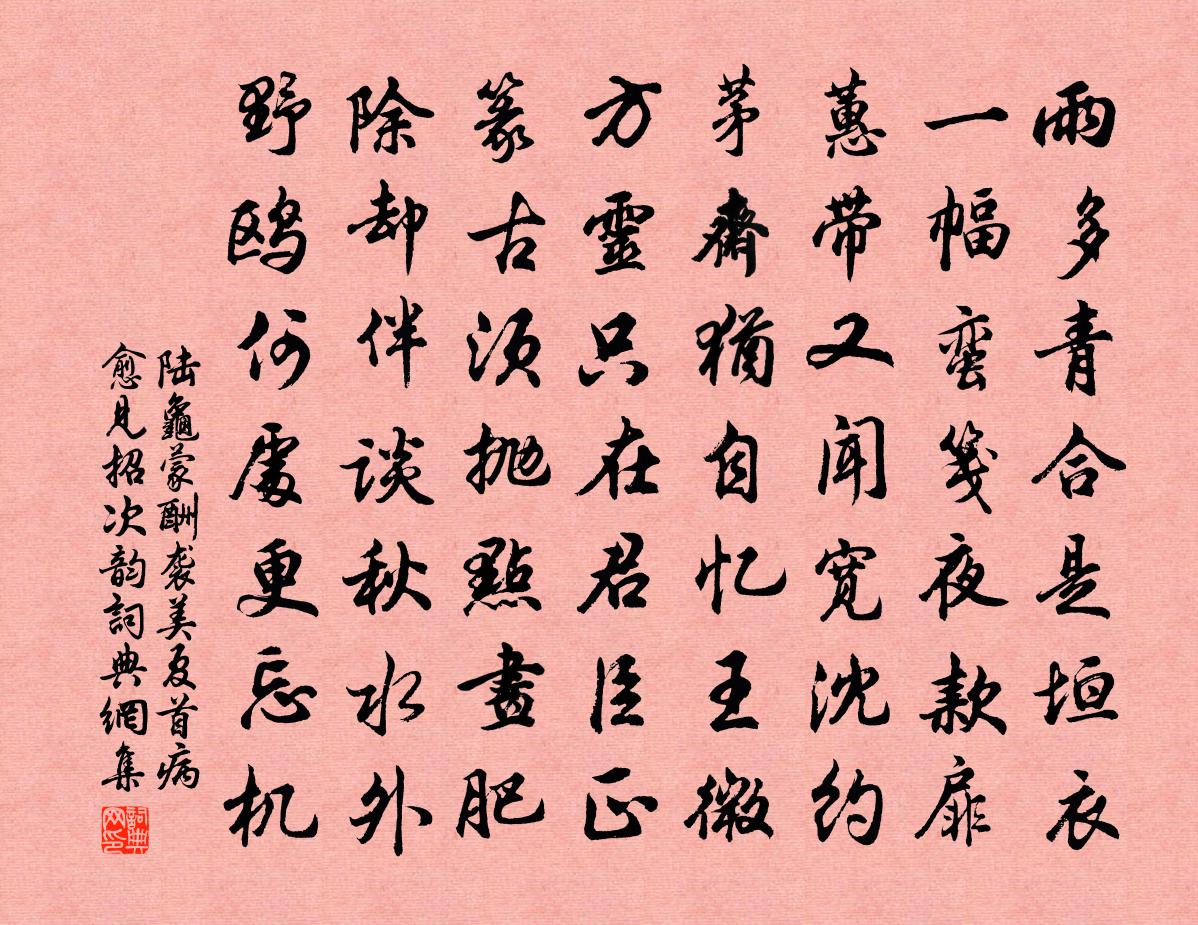 雨多青合是垣衣
一幅蛮箋夜款扉
蕙带又闻宽沈约
茅齋犹自忆王微
方靈只在君臣正
篆古须抛點畫肥
除却伴谈秋水外
野鸥何處更忘机
陆龜蒙酬袭美夏首病
愈见招次韵詞典網集
詞典
网印